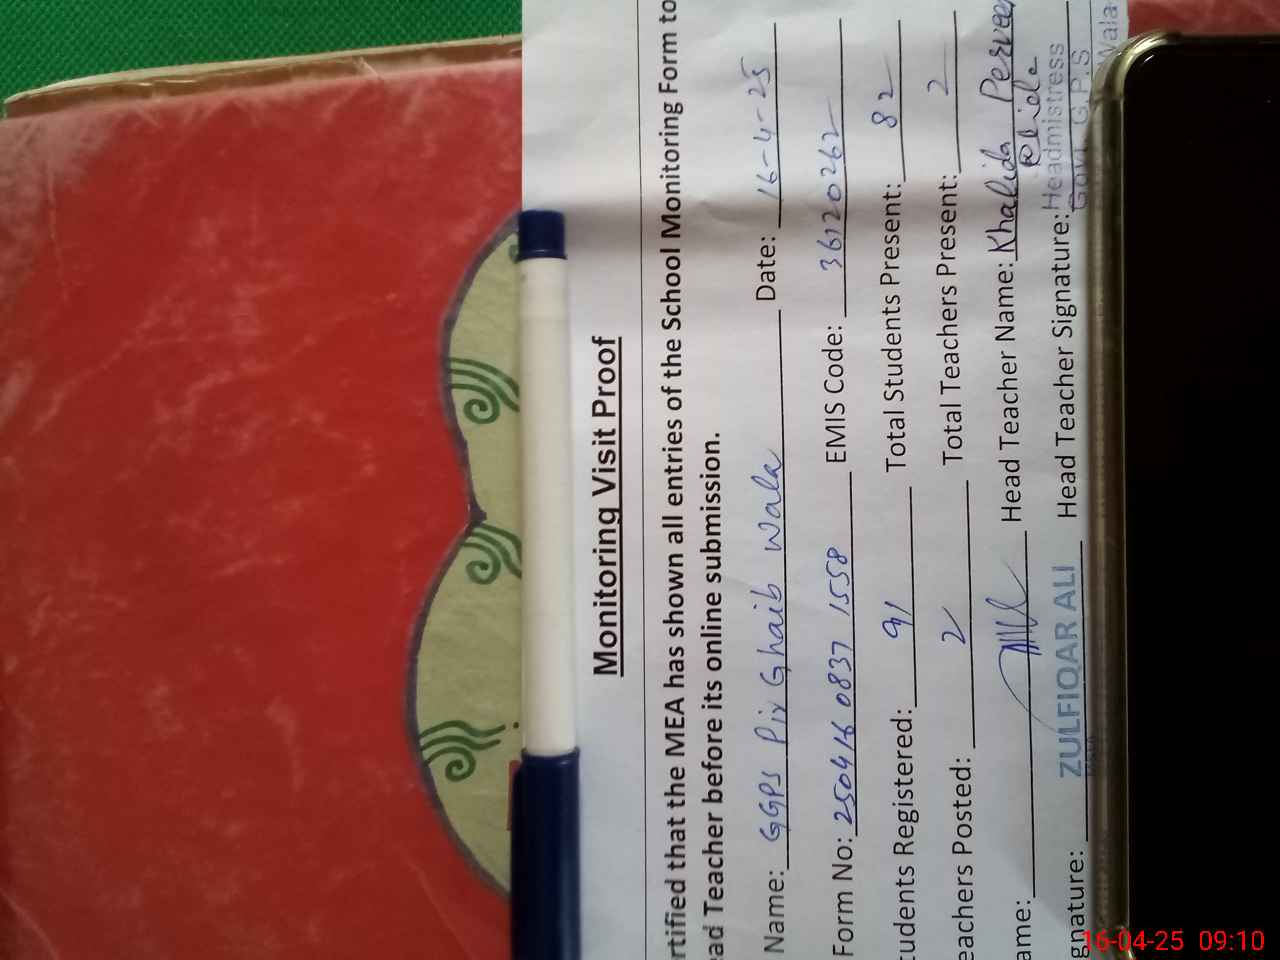 Monitoring Visit Proof
rtified that the MEA has shown all entries of the School Monitoring Form to
ad Teacher before its online submission.
Name: GGPS Pir Ghaib Wala Date: 16-4-25
Form No: 250416 0837 1558 EMIS Code: 36120262
tudents Registered: 91 Total Students Present: 82
eachers Posted: 2 Total Teachers Present: 2
ame: Head Teacher Name: Khalida Perveen
gnature: ZULFIQAR ALI Head Teacher Signature:
Headmistress
Govt. G.P.S
Wala
16-04-25 09:10